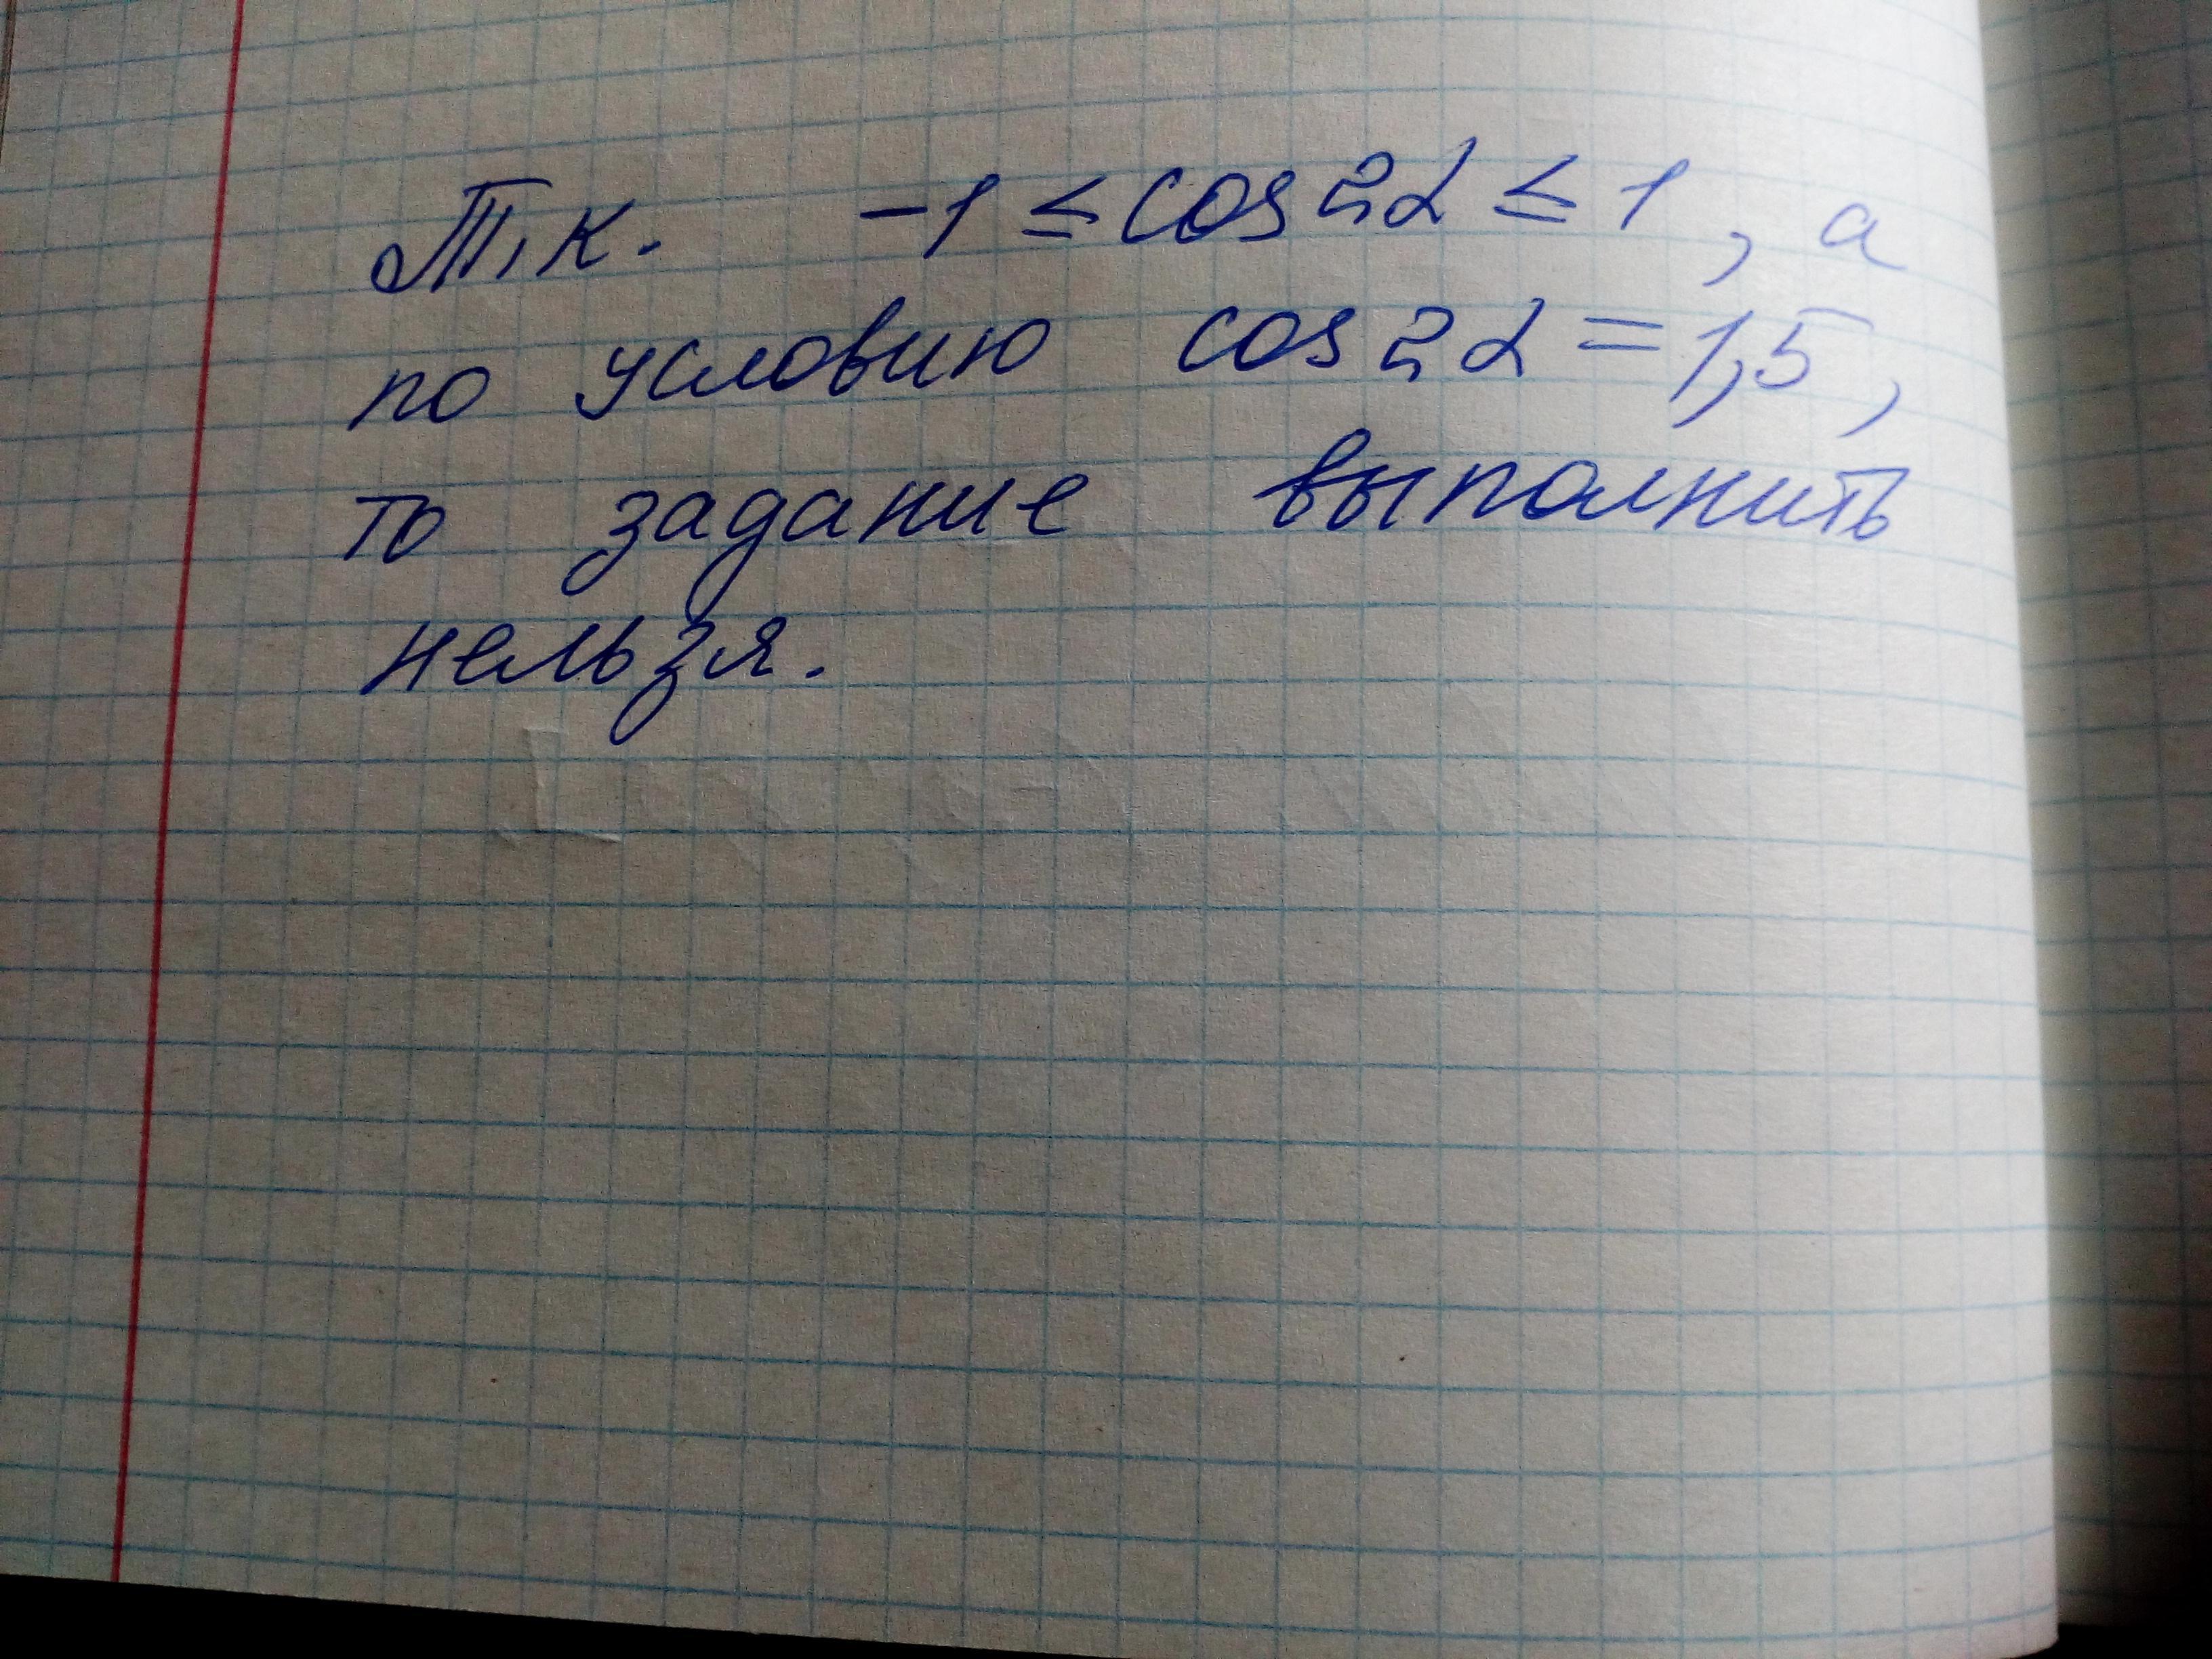 Т.к. -1 ≤ cos 2α ≤ 1, а
по условию cos 2α = 1,5,
то задание выполнить
нельзя.